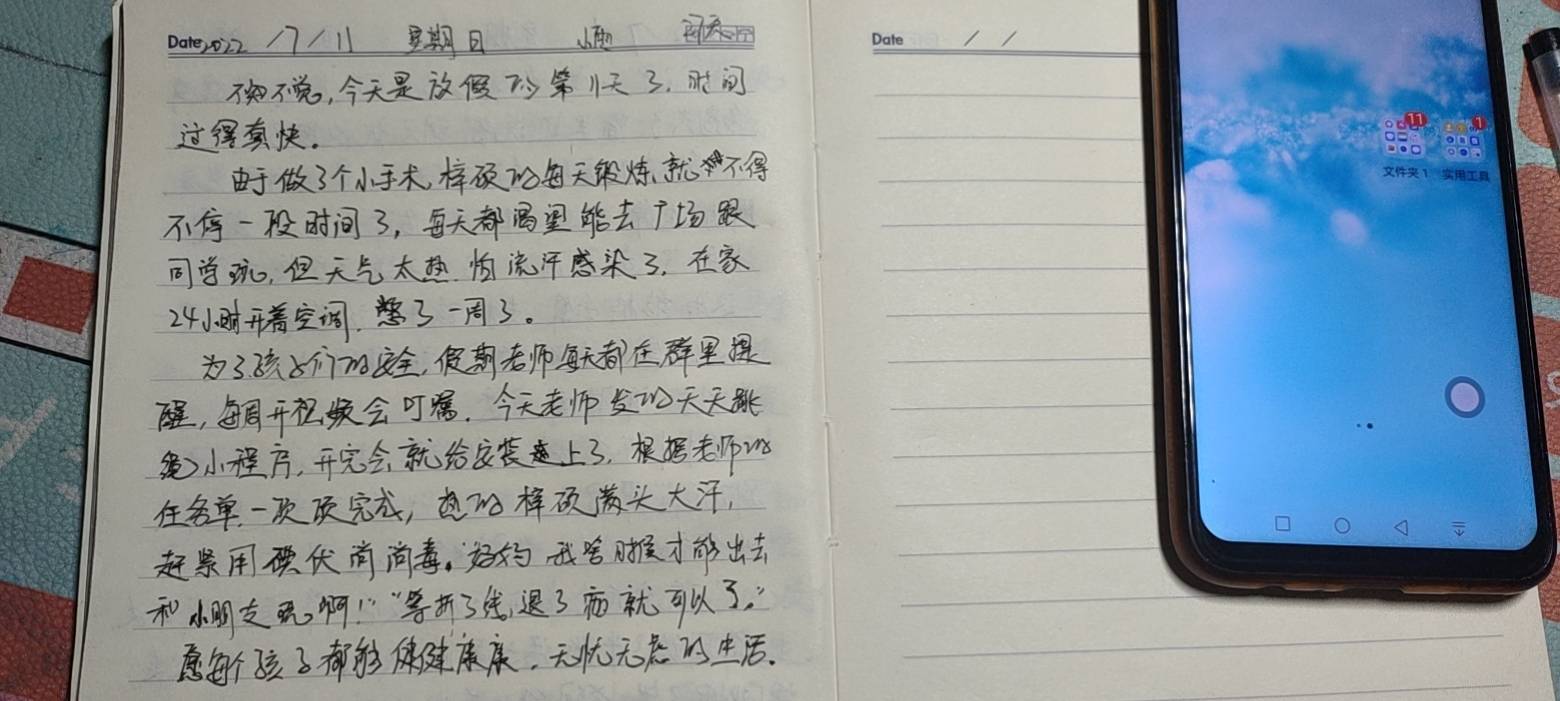 Date 2022 / 7 / 11 星期日
不知不觉,今天是放假的第11天了.时间
过得真快。
由于做了个小手术,梓硕的每天锻炼,就不得
不停一段时间了,每天都渴望能去广场跟
同学玩,但天气太热.怕流汗感染了.在家
24小时开着空调.憋了一周了。
为了孩子们的安全,假期老师每天都在群里提
醒,每周开视频会叮嘱.今天老师发的天天跳
绳小程序,开完会就给安装上了.根据老师的
任务单.一项项完成,热的梓硕满头大汗,
赶紧用碘伏消消毒。妈妈 我啥时候才能出去
和小朋友玩啊!""等拆了线,退了痂就可以了。"
愿每个孩子都能健健康康.无忧无虑的生活.
Date / /
11
1
文件夹 1
实用工具